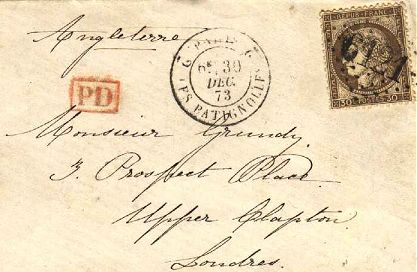 Angleterre
PARIS
2E / 30
DEC.
73
PS BATIGNOLLES
REPUB. FRANC.
30 POSTES 30
PD
Monsieur Grundy
3. Prospect Place
Upper Clapton
Londres.